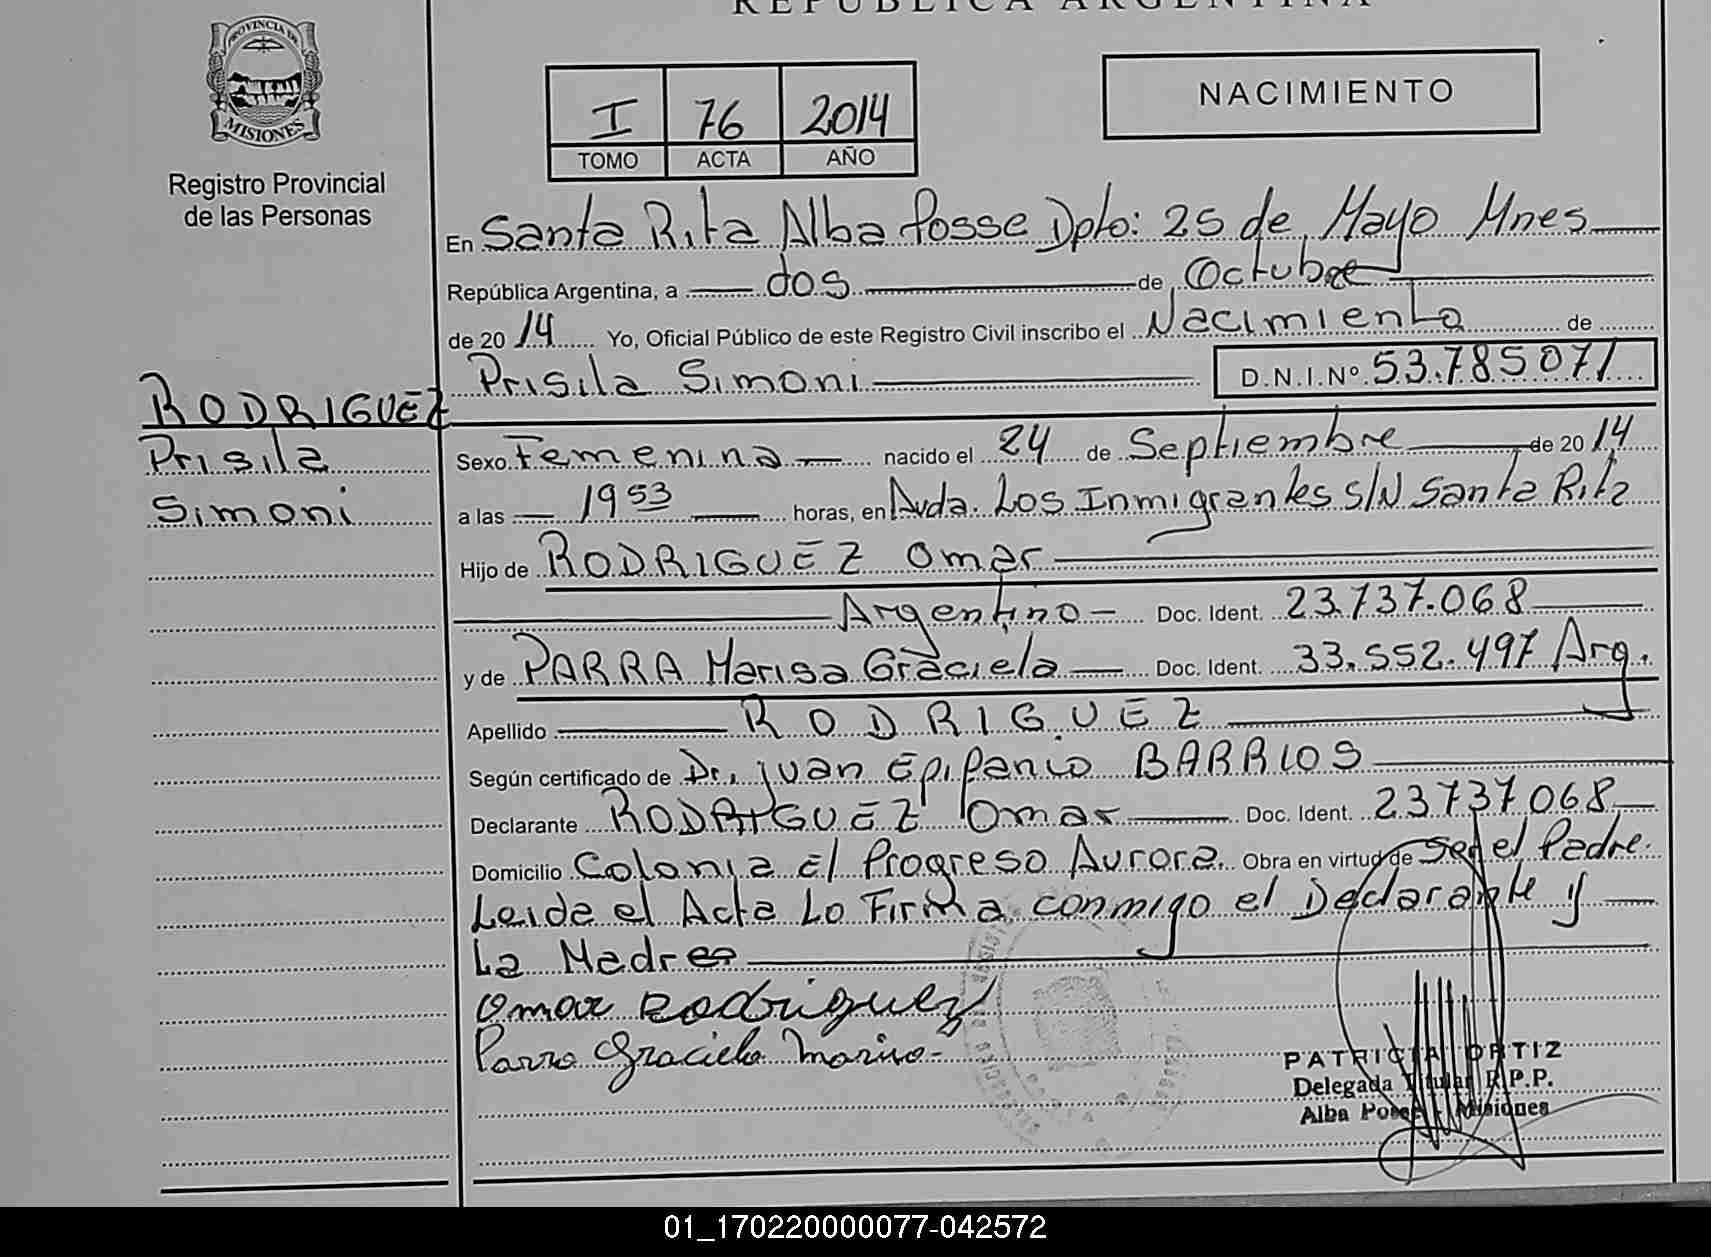 REPUBLICA ARGENTINA
PROVINCIA DE
MISIONES
Registro Provincial
de las Personas
I 76 2014
TOMO ACTA AÑO
NACIMIENTO
En Santa Rita Alba Posse Dpto: 25 de Mayo Mnes
República Argentina, a dos de Octubre
de 2014 Yo, Oficial Público de este Registro Civil inscribo el Nacimiento de
Prisila Simoni D.N.I.Nº 53.785071
RODRIGUEZ
Prisila
Simoni
Sexo Femenina nacido el 24 de Septiembre de 2014
a las 19 53 horas, en Avda. Los Inmigrantes S/N Santa Rita
Hijo de RODRIGUEZ Omar
Argentino Doc. Ident. 23.737.068
y de PARRA Marisa Graciela Doc. Ident. 33.552.497 Arg.
Apellido RODRIGUEZ
Según certificado de Dr. Juan Epifanio BARRIOS
Declarante RODRIGUEZ Omar Doc. Ident. 23737068
Domicilio Colonia El Progreso Aurora. Obra en virtud de ser el Padre.
Leida el Acta Lo Firma conmigo el Declarante y
La Madre
Omar Rodriguez
Parra Graciela Marisa
PATRICIA ORTIZ
Delegada Titular R.P.P.
Alba Posse - Misiones
01_170220000077-042572